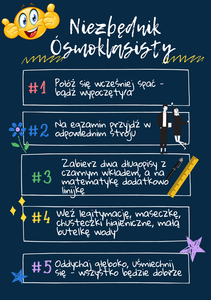 Niezbędnik
Ósmoklasisty
#1 Połóż się wcześniej spać -
bądź wypoczęty/a
#2 Na egzamin przyjdź w
odpowiednim stroju
#3 Zabierz dwa długopisy z
czarnym wkładem, a na
matematykę dodatkowo
linijkę
#4 Weź legitymację, maseczkę,
chusteczki higieniczne, małą
butelkę wody
#5 Oddychaj głęboko, uśmiechnij
się - wszystko będzie dobrze